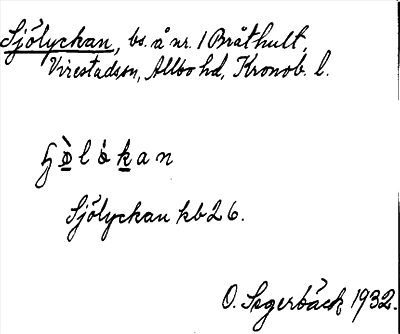 Sjölyckan, bs. å nr. 1 Bråthult,
Virestadssn, Allbo hd, Kronob. l.
Sjölyckan kb26.
O. Segerbäck 1932.